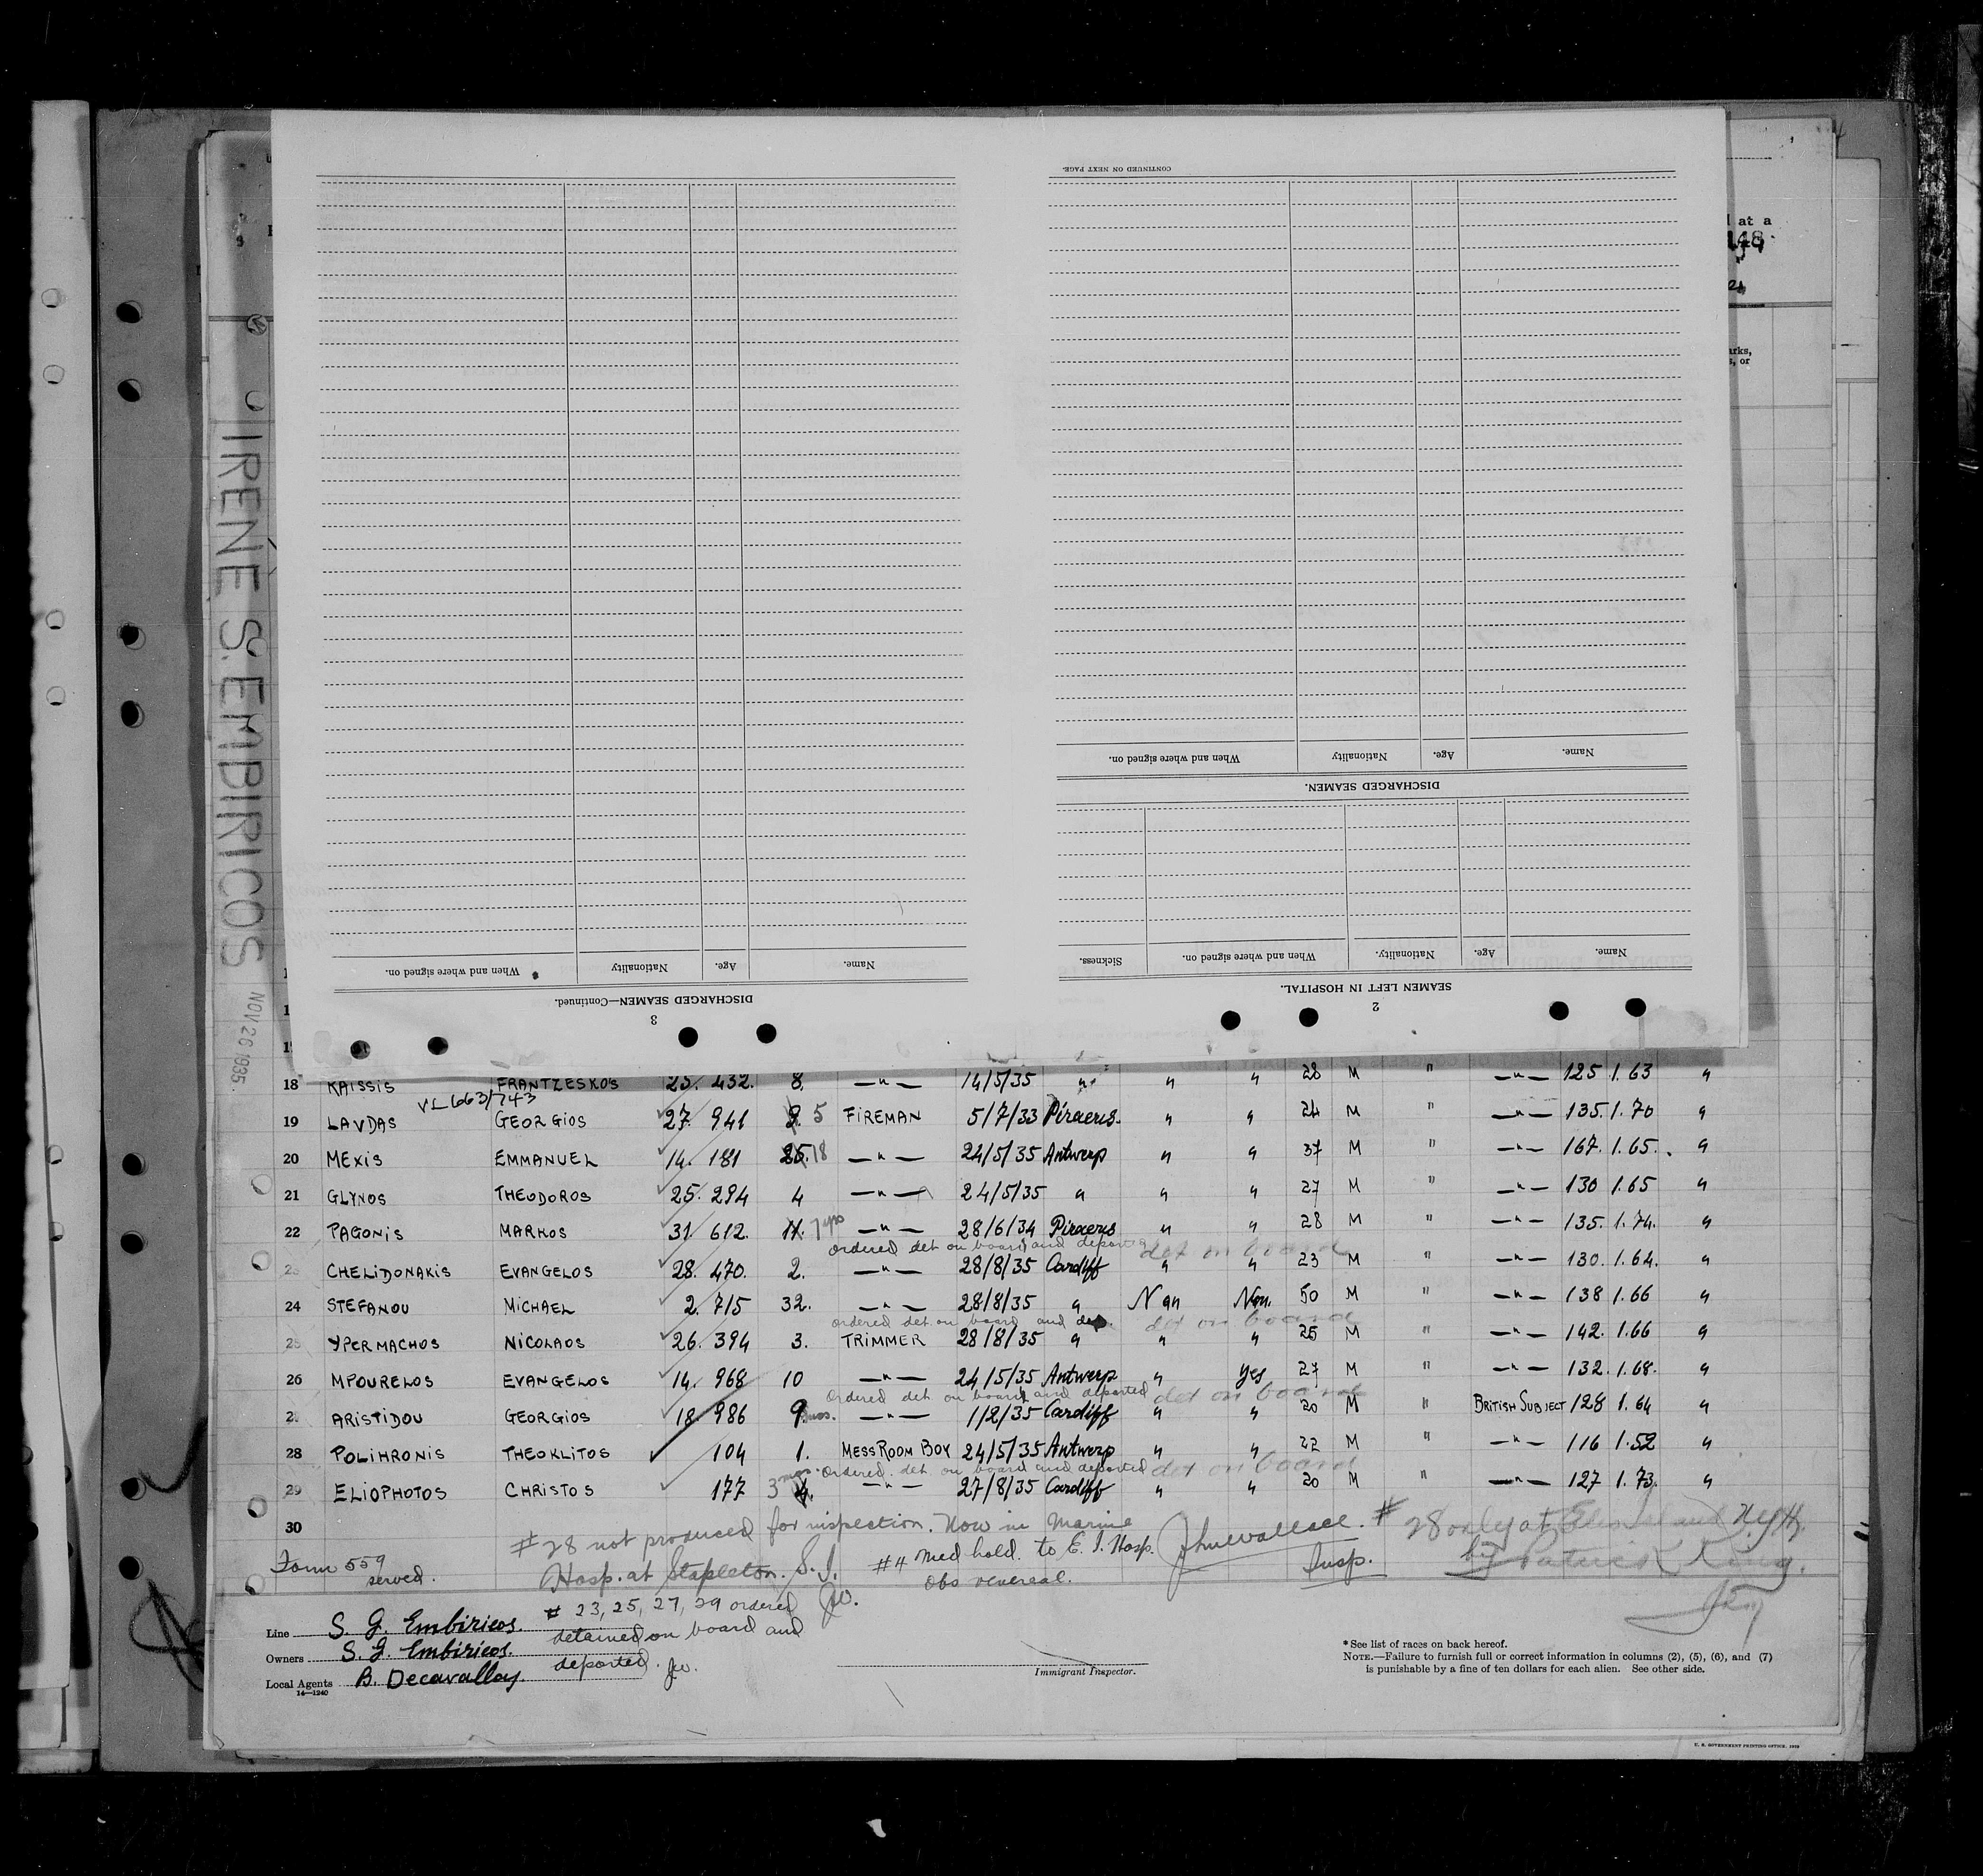 CONTINUED ON NEXT PAGE.
When and where signed on.	Nationality	Age.	Name.
DISCHARGED SEAMEN.
Sickness.	When and where signed on.	Nationality.	Age.	Name.
SEAMEN LEFT IN HOSPITAL.
2
When and where signed on.	Nationality	Age.	Name.
DISCHARGED SEAMEN—Continued.
3
at a
148
arks,
, or
IRENE S. EMBIRICOS NOV 26 1935
18 KAISSIS FRANTZESKOS 25. 432. 8. —"— 14/5/35 " " " 28 M " —"— 125 1.63 "
VL 663/743
19 LAVDAS GEORGIOS 27. 941 5 FIREMAN 5/7/33 Piraeus. " " 24 M " —"— 135. 1.70 "
20 MEXIS EMMANUEL 14. 181 25 18 —"— 24/5/35 Antwerp " " 37 M " —"— 167. 1.65. "
21 GLYNOS THEODOROS 25. 294 4 —"— 24/5/35 " " " 27 M " —"— 130 1.65 "
22 PAGONIS MARKOS 31 612. 11. 7 yrs —"— 28/6/34 Piraeus " " 28 M " —"— 135. 1.74. "
ordered det on board and deported det on board
23 CHELIDONAKIS EVANGELOS 28. 470. 2. —"— 28/8/35 Cardiff " " 23 M " —"— 130. 1.64. "
24 STEFANOU MICHAEL 2. 715 32. —"— 28/8/35 " Non Non. 50 M " —"— 138 1.66 "
ordered det on board and dep. det on board
25 YPERMACHOS NICOLAOS 26. 394 3. TRIMMER 28/8/35 " " " 25 M " —"— 142. 1.66 "
26 MPOURELOS EVANGELOS 14. 968 10 —"— 24/5/35 Antwerp " Yes 27 M " —"— 132. 1.68. "
Ordered det on board and deported det on board
27 ARISTIDOU GEORGIOS 18. 986 9 mos. —"— 1/2/35 Cardiff " " 20 M " BRITISH SUBJECT 128 1.64 "
28 POLIHRONIS THEOKLITOS 104 1. MESS ROOM BOY 24/5/35 Antwerp " " 22 M " —"— 116 1.52 "
ordered det on board and deported det on board
29 ELIOPHOTOS CHRISTOS 177 3 mos. 4. —"— 27/8/35 Cardiff " " 20 M " —"— 127 1.73. "
30
# 28 not produced for inspection. Now in Marine
Hosp. at Stapleton. S.I.
Jw.
#4 Med hold. to E. I. Hosp.
Obs venereal.
Jhnwallace.
Insp.
# 28 only at Ellis Island N.Y.H.
by Patrick King.
Form 559
served.
# 23, 25, 27, 29 ordered
detained on board and
deported. Jw.
Line S. G. Embiricos.
Owners S. G. Embiricos.
Local Agents B. Decavallas.
14—1240
Immigrant Inspector.
* See list of races on back hereof.
NOTE.—Failure to furnish full or correct information in columns (2), (5), (6), and (7)
is punishable by a fine of ten dollars for each alien. See other side.
U. S. GOVERNMENT PRINTING OFFICE